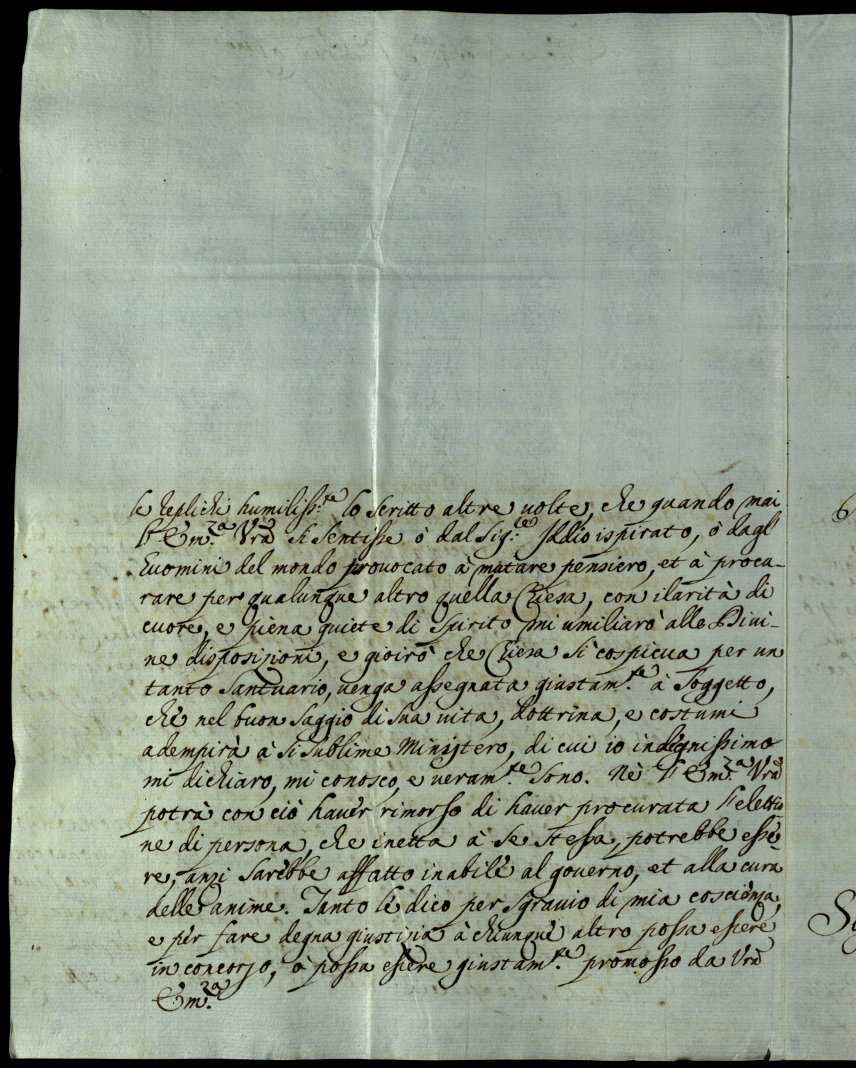 le replichi humiliss.te lo scritto altre uolte, che quando mai
l'Em.za Vrã si sentisse ò dal Sig.re Iddio ispirato, ò dagl'
Huomini del mondo prouocato à mutare pensiero, et à procu-
rare per qualunque altro quella Chiesa, con ilarità di
cuore, e piena quiete di spirito mi umiliarò alle Diui-
ne disposizioni, e gioirò che Chiesa sì cospicua per un
tanto Santuario, uenga assegnata giustam.te à Soggetto,
che nel buon saggio di sua uita, dottrina, e costumi
adempirà à sì sublime Ministero, di cui io indignissimo
mi dichiaro, mi conosco, e ueram.te sono. Nè l'Em.za Vrã
potrà con ciò hauer rimorso di hauer procurata l'elettio
ne di persona, che inetta à se stessa potrebbe esse
re, anzi sarebbe affatto inabile al gouerno, et alla cura
delle anime. Tanto le dico per sgrauio di mia coscienza,
e per fare degna giustizia à chiunque altro possa essere
in concorso, ò possa essere giustam.te promosso da Vrã
Em.za